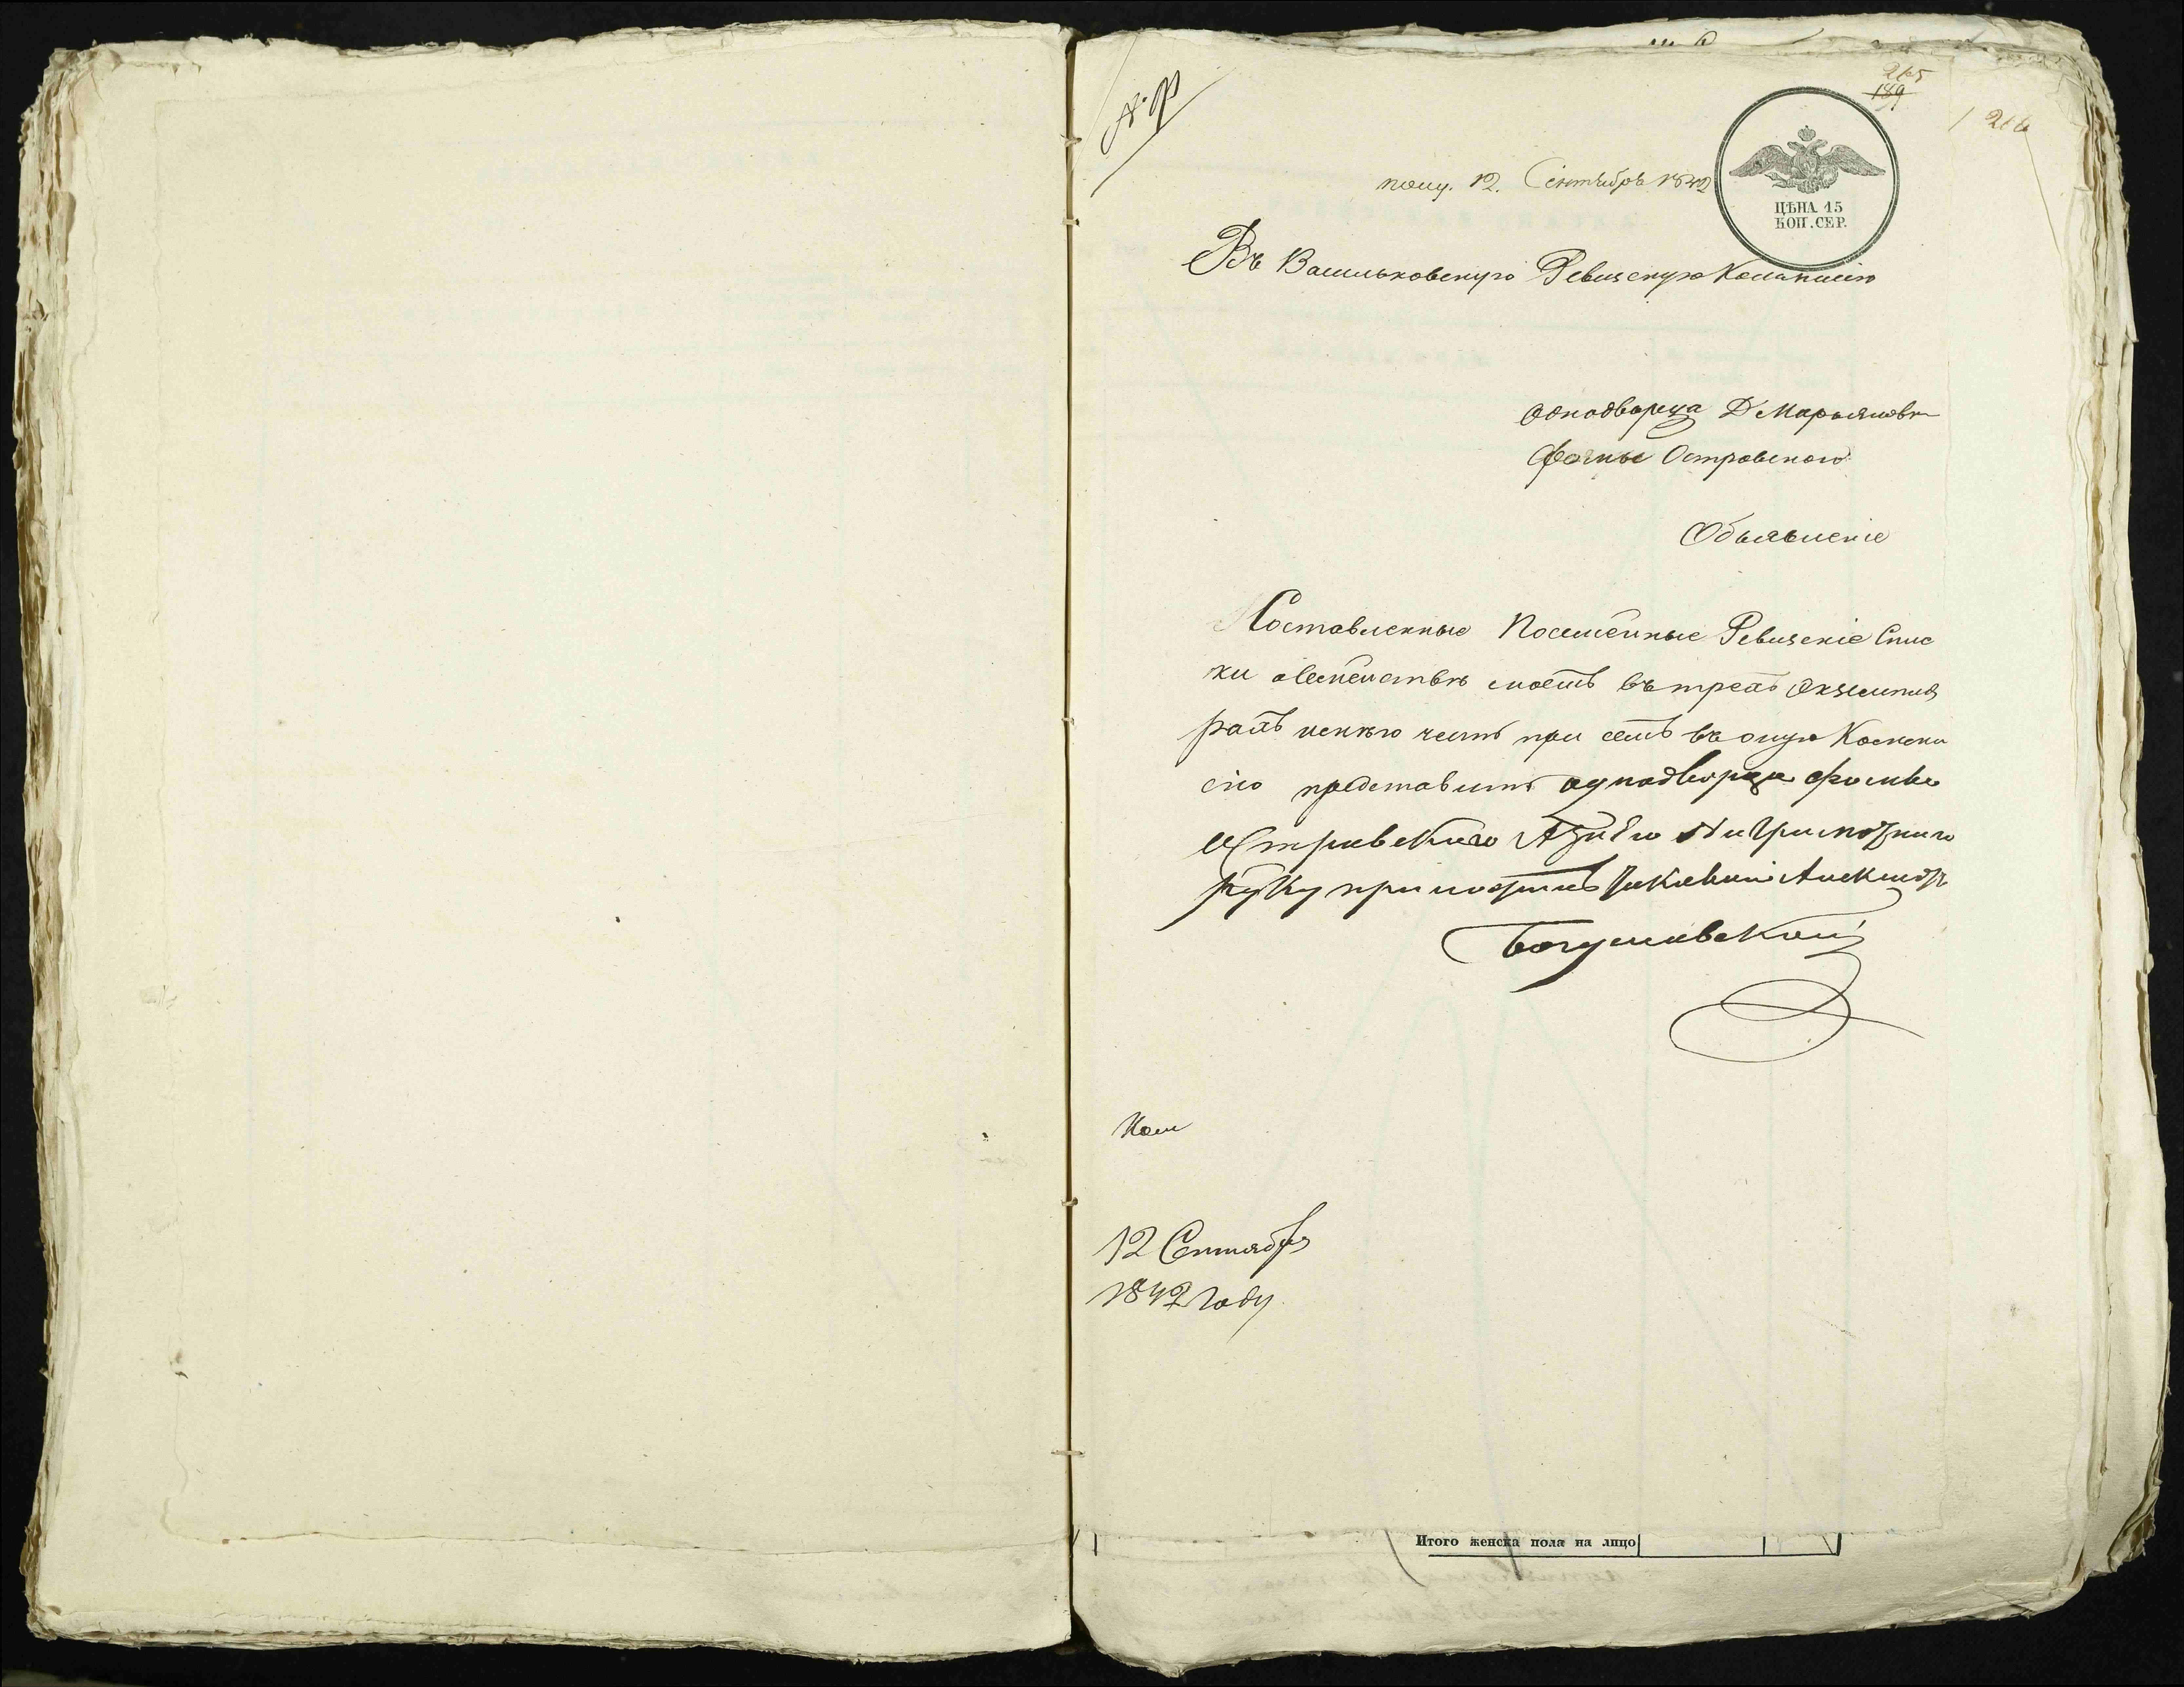 265
189
266
полу. 12. Сентября 1842
ЦѢНА 15
КОП. СЕР.
Въ Васильковскую Ревизскую Комисию
Однодворца Д Марьяновки
Фомы Островского
Объявленіе
Составленные Посемейные Ревизскіе Спис
ки о семействѣ моемъ въ трехъ Экземпля
рахъ имею честь при семъ въ оную Комми
сію представить однодворца Фомы
Островского А За Его неграмотного
руку приложилъ Александръ
Богушевской
12 Сентября
1842 Году
Итого женска пола на лицо